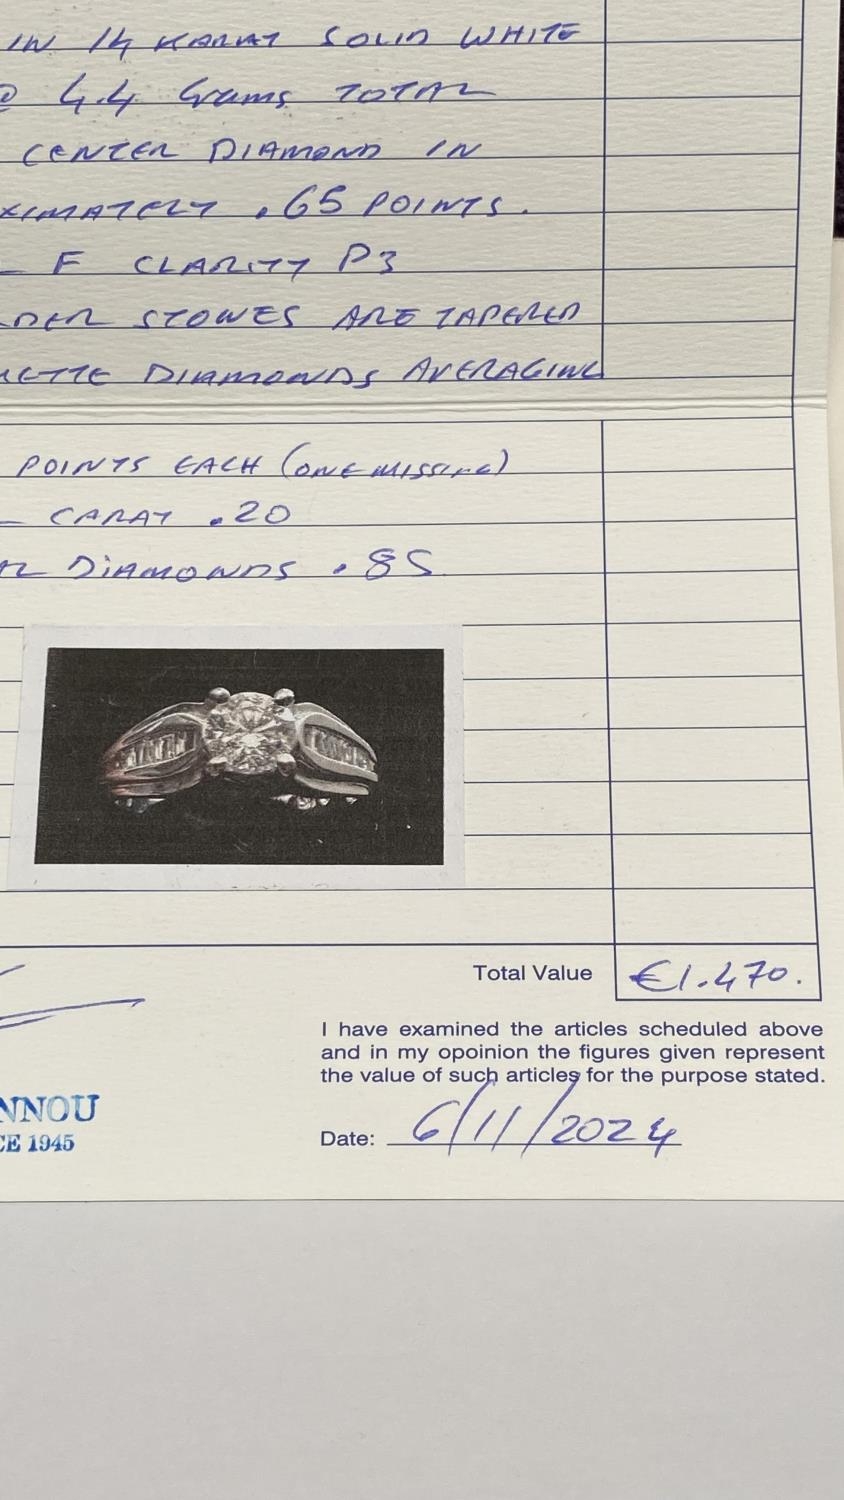 IN 14 KARAT SOLID WHITE
@ 4.4 Grams TOTAL
CENTER DIAMOND IN
XIMATELY .65 POINTS.
F CLARITY P3
LDER STONES ARE TAPERED
UETTE DIAMONDS AVERAGING
POINTS EACH (ONE MISSING)
CARAT .20
AL DIAMONDS .85
Total Value €1.470.
I have examined the articles scheduled above
and in my opoinion the figures given represent
the value of such articles for the purpose stated.
NNOU
CE 1945
Date: 6/11/2024